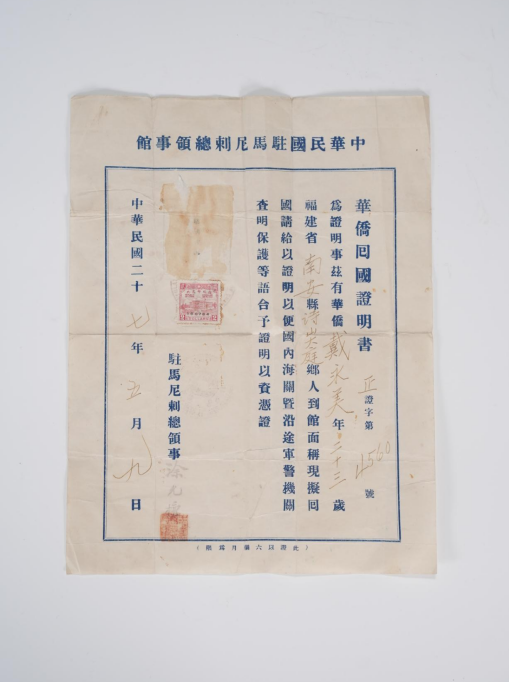 中華民國駐馬尼剌總領事館
華僑回國證明書
証字第4560號
為證明事茲有華僑戴永美年二十三歲
福建省南安縣詩山鄉人到館面稱現擬回
國請給以證明以便國內海關暨沿途軍警機關
查明保護等語合予證明以資憑證
駐馬尼剌總領事
中華民國二十七年五月九日
(此證以六個月為限)